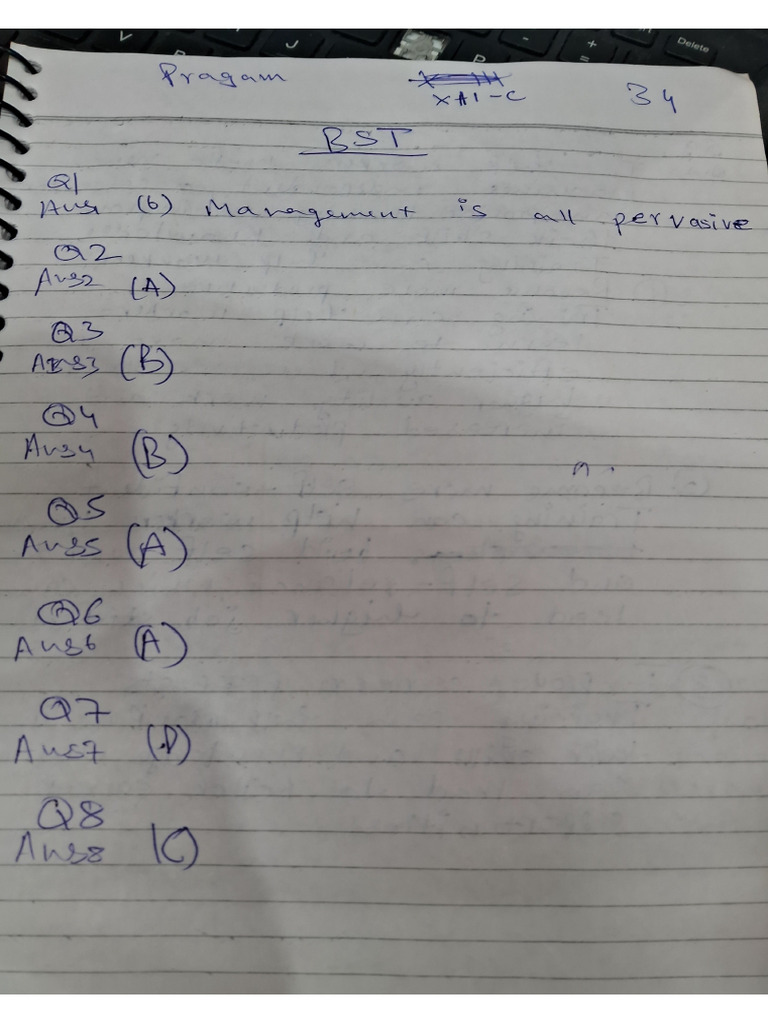 Pragam
XAI-C
34
BST
Q1
Ans1 (b) Management is all pervasive
Q2
Ans2 (A)
Q3
Ans3 (B)
Q4
Ans4 (B)
Q5
Ans5 (A)
Q6
Ans6 (A)
Q7
Ans7 (D)
Q8
Ans8 (C)